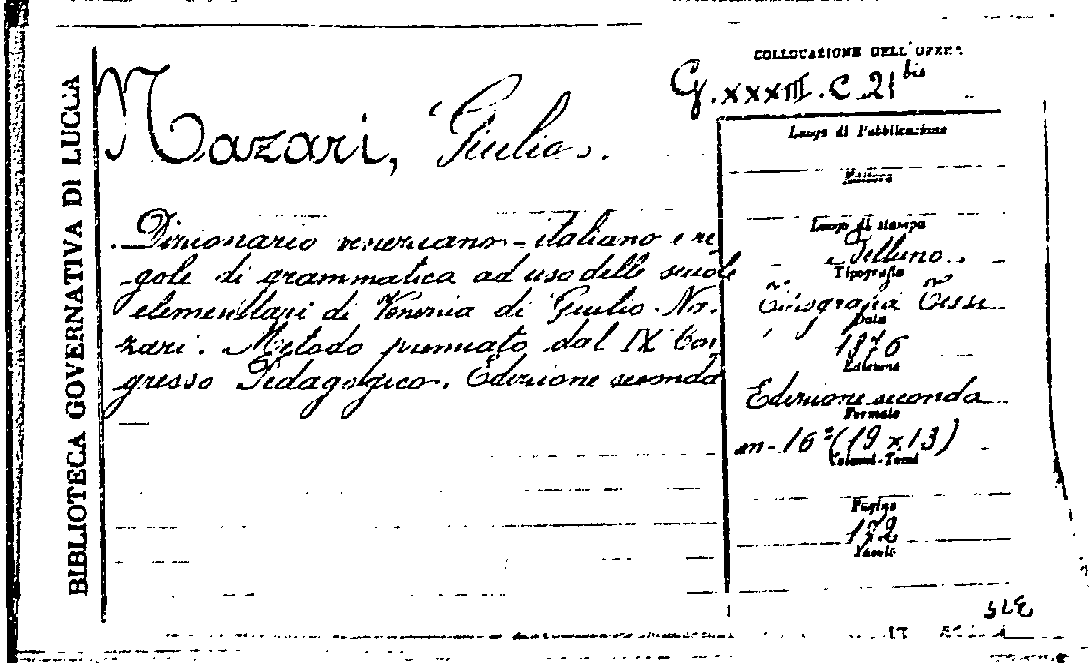 BIBLIOTECA GOVERNATIVA DI LUCCA
COLLOCAZIONE DELL'OPERA
G. XXXIII. C. 21 bis
Nazari, Giulio.
Dizionario veneziano-italiano e re
gole di grammatica ad uso delle scuole
elementari di Venezia di Giulio Na-
zari. Metodo premiato dal IX Con
gresso Pedagogico. Edizione seconda
Luogo di Pubblicazione
Luogo di stampa
Belluno.
Tipografia
Tipografia Tissi
Data
1876
Edizione
Edizione seconda
Formato
in-16° (19 x 13)
Volumi-Tomi
Pagine
172
Tavole